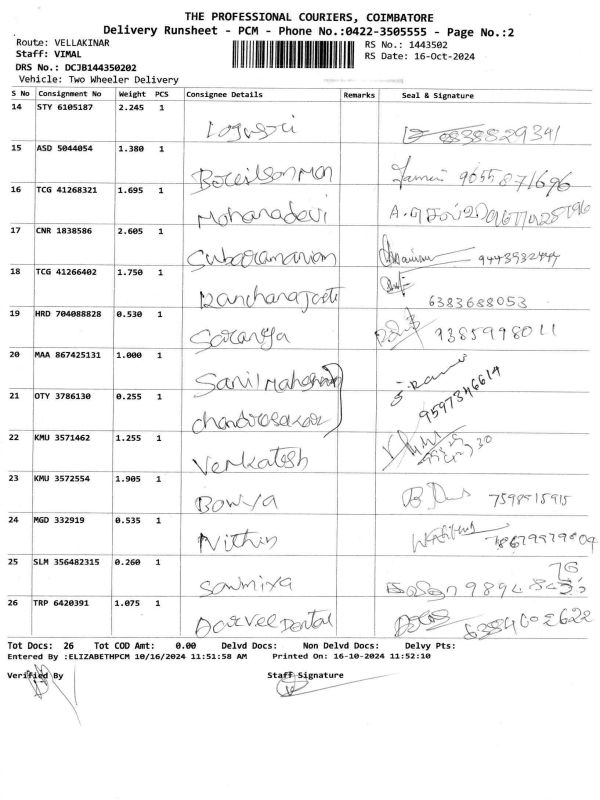 THE PROFESSIONAL COURIERS, COIMBATORE
Delivery Runsheet - PCM - Phone No.:0422-3505555 - Page No.:2
Route: VELLAKINAR RS No.: 1443502
Staff: VIMAL RS Date: 16-Oct-2024
DRS No.: DCJB144350202
Vehicle: Two Wheeler Delivery
S No Consignment No Weight PCS Consignee Details Remarks Seal & Signature
14 STY 6105187 2.245 1
15 ASD 5044054 1.380 1
16 TCG 41268321 1.695 1 Mohanadevi
17 CNR 1838586 2.605 1 Subaramaniam 9443532444
18 TCG 41266402 1.750 1 6383688053
19 HRD 704088828 0.530 1 Saranya 9385998011
20 MAA 867425131 1.000 1
21 OTY 3786130 0.255 1 9597346614
22 KMU 3571462 1.255 1 Venkatesh
23 KMU 3572554 1.905 1 Bowya 7598515915
24 MGD 332919 0.535 1 Nithin
25 SLM 356482315 0.260 1 Sowmiya
26 TRP 6420391 1.075 1 Dental
Tot Docs: 26 Tot COD Amt: 0.00 Delvd Docs: Non Delvd Docs: Delvy Pts:
Entered By :ELIZABETHPCM 10/16/2024 11:51:58 AM Printed On: 16-10-2024 11:52:10
Verified By Staff Signature